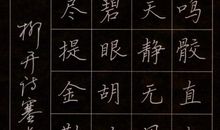 鸣骹直
天静无
碧眼胡
尽提金
柳开诗塞